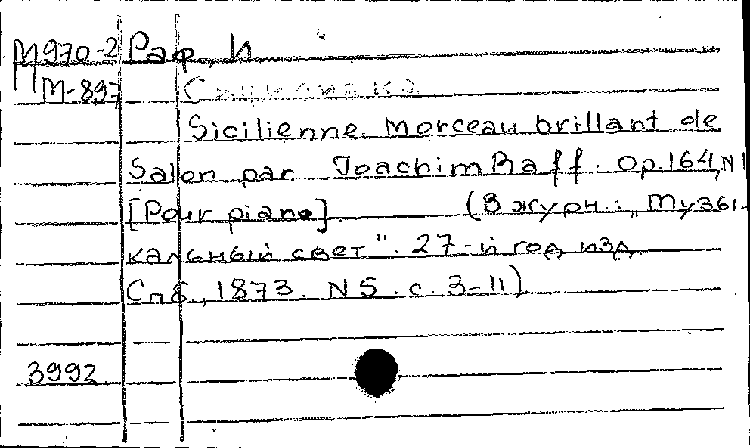 М970-2 Раф, И
М-897 Сицилианка
Sicilienne. Morceau brillant de
Salon par Joachim Raff. Op. 164, N1
[Pour piano]. (В журн.: „Музы-
кальный свет". 27-й год изд
Спб., 1873. N5. с. 3-11)
3992